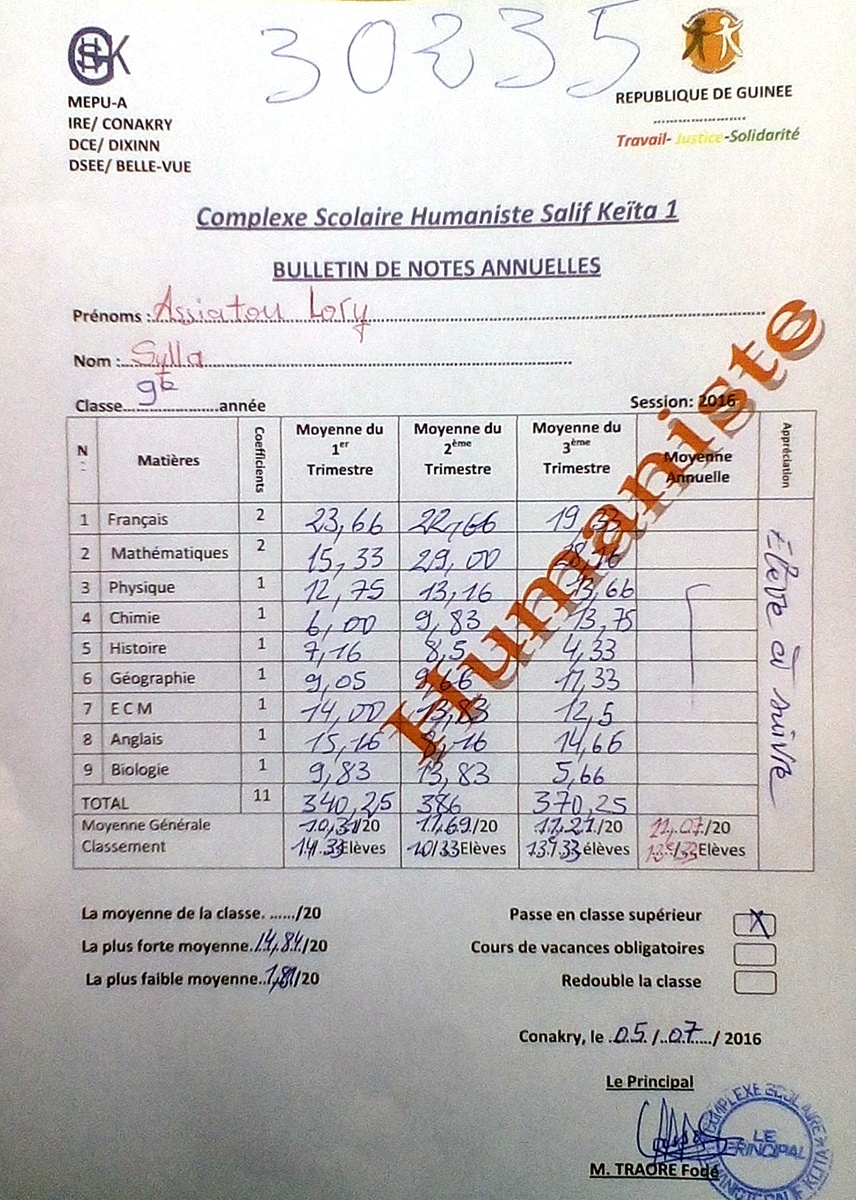 30235
GHSK
MEPU-A
IRE/ CONAKRY
DCE/ DIXINN
DSEE/ BELLE-VUE
REPUBLIQUE DE GUINEE
Travail- Justice-Solidarité
Complexe Scolaire Humaniste Salif Keïta 1
BULLETIN DE NOTES ANNUELLES
Prénoms : Assiatou Lory
Nom : Sylla
Classe 9e année Session: 2016
N Matières Coefficients Moyenne du 1er Trimestre Moyenne du 2ème Trimestre Moyenne du 3ème Trimestre Moyenne Annuelle Appréciation
1 Français 2 23,66 22,66 19,33
2 Mathématiques 2 15,33 29,00
3 Physique 1 12,75 13,16 13,66
4 Chimie 1 6,00 9,83 13,75
5 Histoire 1 7,16 8,5 4,33
6 Géographie 1 9,05 9,66 17,33
7 E C M 1 14,00 13,83 12,5
8 Anglais 1 15,16 8,16 14,66
9 Biologie 1 9,83 13,83 5,66
TOTAL 11 340,25 386 370,25
Moyenne Générale 10,31/20 11,69/20 11,21/20 11,07/20
Classement 14/33 Elèves 10/33 Elèves 13/33 élèves 13e/33 Elèves
Elève à suivre
Humaniste
La moyenne de la classe. ....../20
La plus forte moyenne. 14,84/20
La plus faible moyenne.. 1,81/20
Passe en classe supérieur X
Cours de vacances obligatoires
Redouble la classe
Conakry, le 05 / 07 / 2016
Le Principal
M. TRAORE Fodé
COMPLEXE SCOLAIRE
LE PRINCIPAL